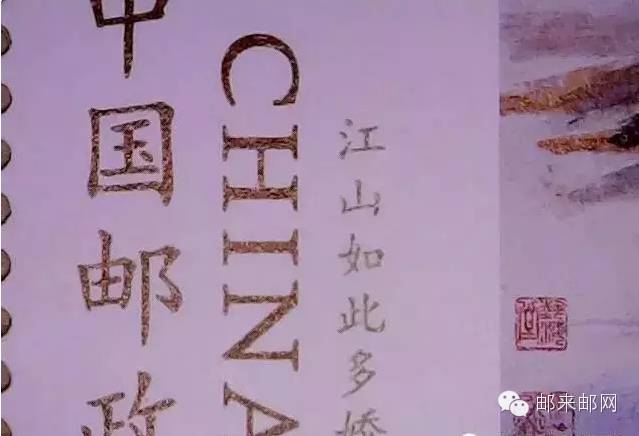 中国邮政
CHINA
江山如此多娇
邮来邮网